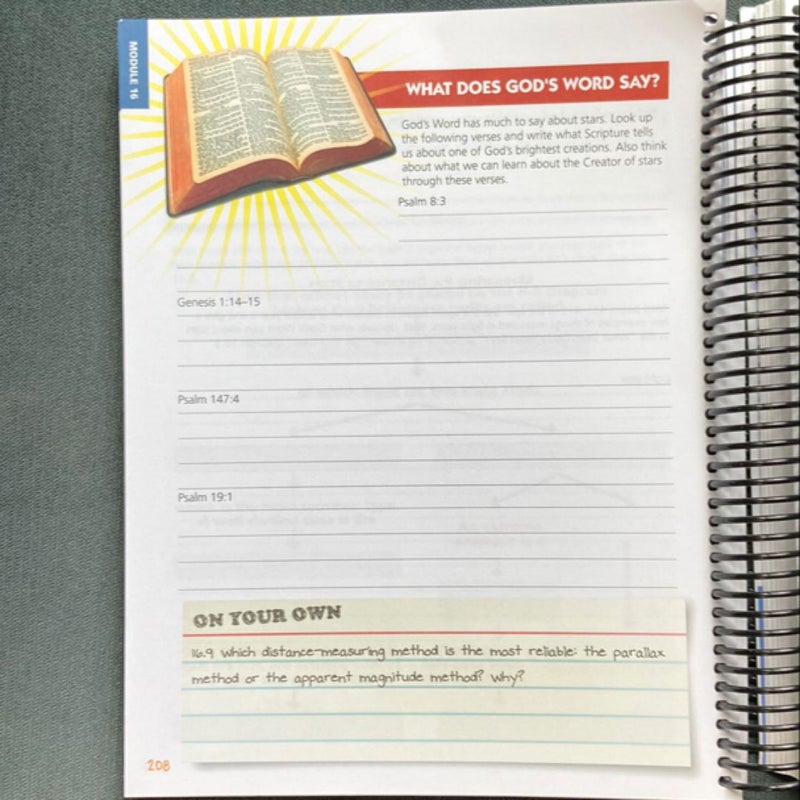 MODULE 16
WHAT DOES GOD'S WORD SAY?
God's Word has much to say about stars. Look up
the following verses and write what Scripture tells
us about one of God's brightest creations. Also think
about what we can learn about the Creator of stars
through these verses.
Psalm 8:3
Genesis 1:14–15
Psalm 147:4
Psalm 19:1
ON YOUR OWN
16.9 Which distance-measuring method is the most reliable: the parallax
method or the apparent magnitude method? Why?
208